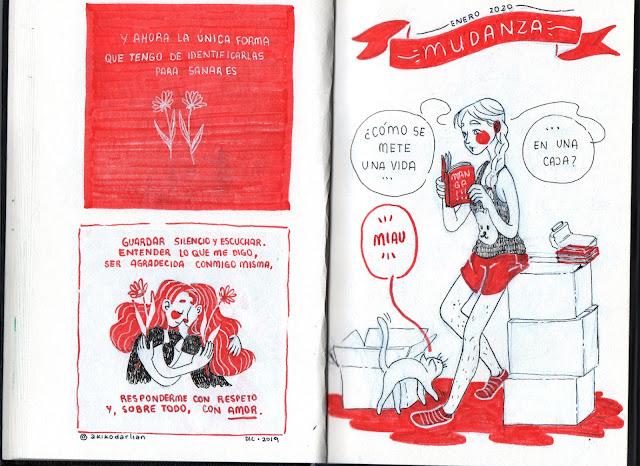 Y AHORA LA ÚNICA FORMA
QUE TENGO DE IDENTIFICARLAS
PARA SANAR ES
GUARDAR SILENCIO Y ESCUCHAR.
ENTENDER LO QUE ME DIGO,
SER AGRADECIDA CONMIGO MISMA,
RESPONDERME CON RESPETO
Y, SOBRE TODO, CON AMOR.
@akikodarlian
DIC • 2019
ENERO 2020
MUDANZA
¿CÓMO SE
METE
UNA VIDA
...
...
EN UNA
CAJA?
MAN
GA!!!
MIAU